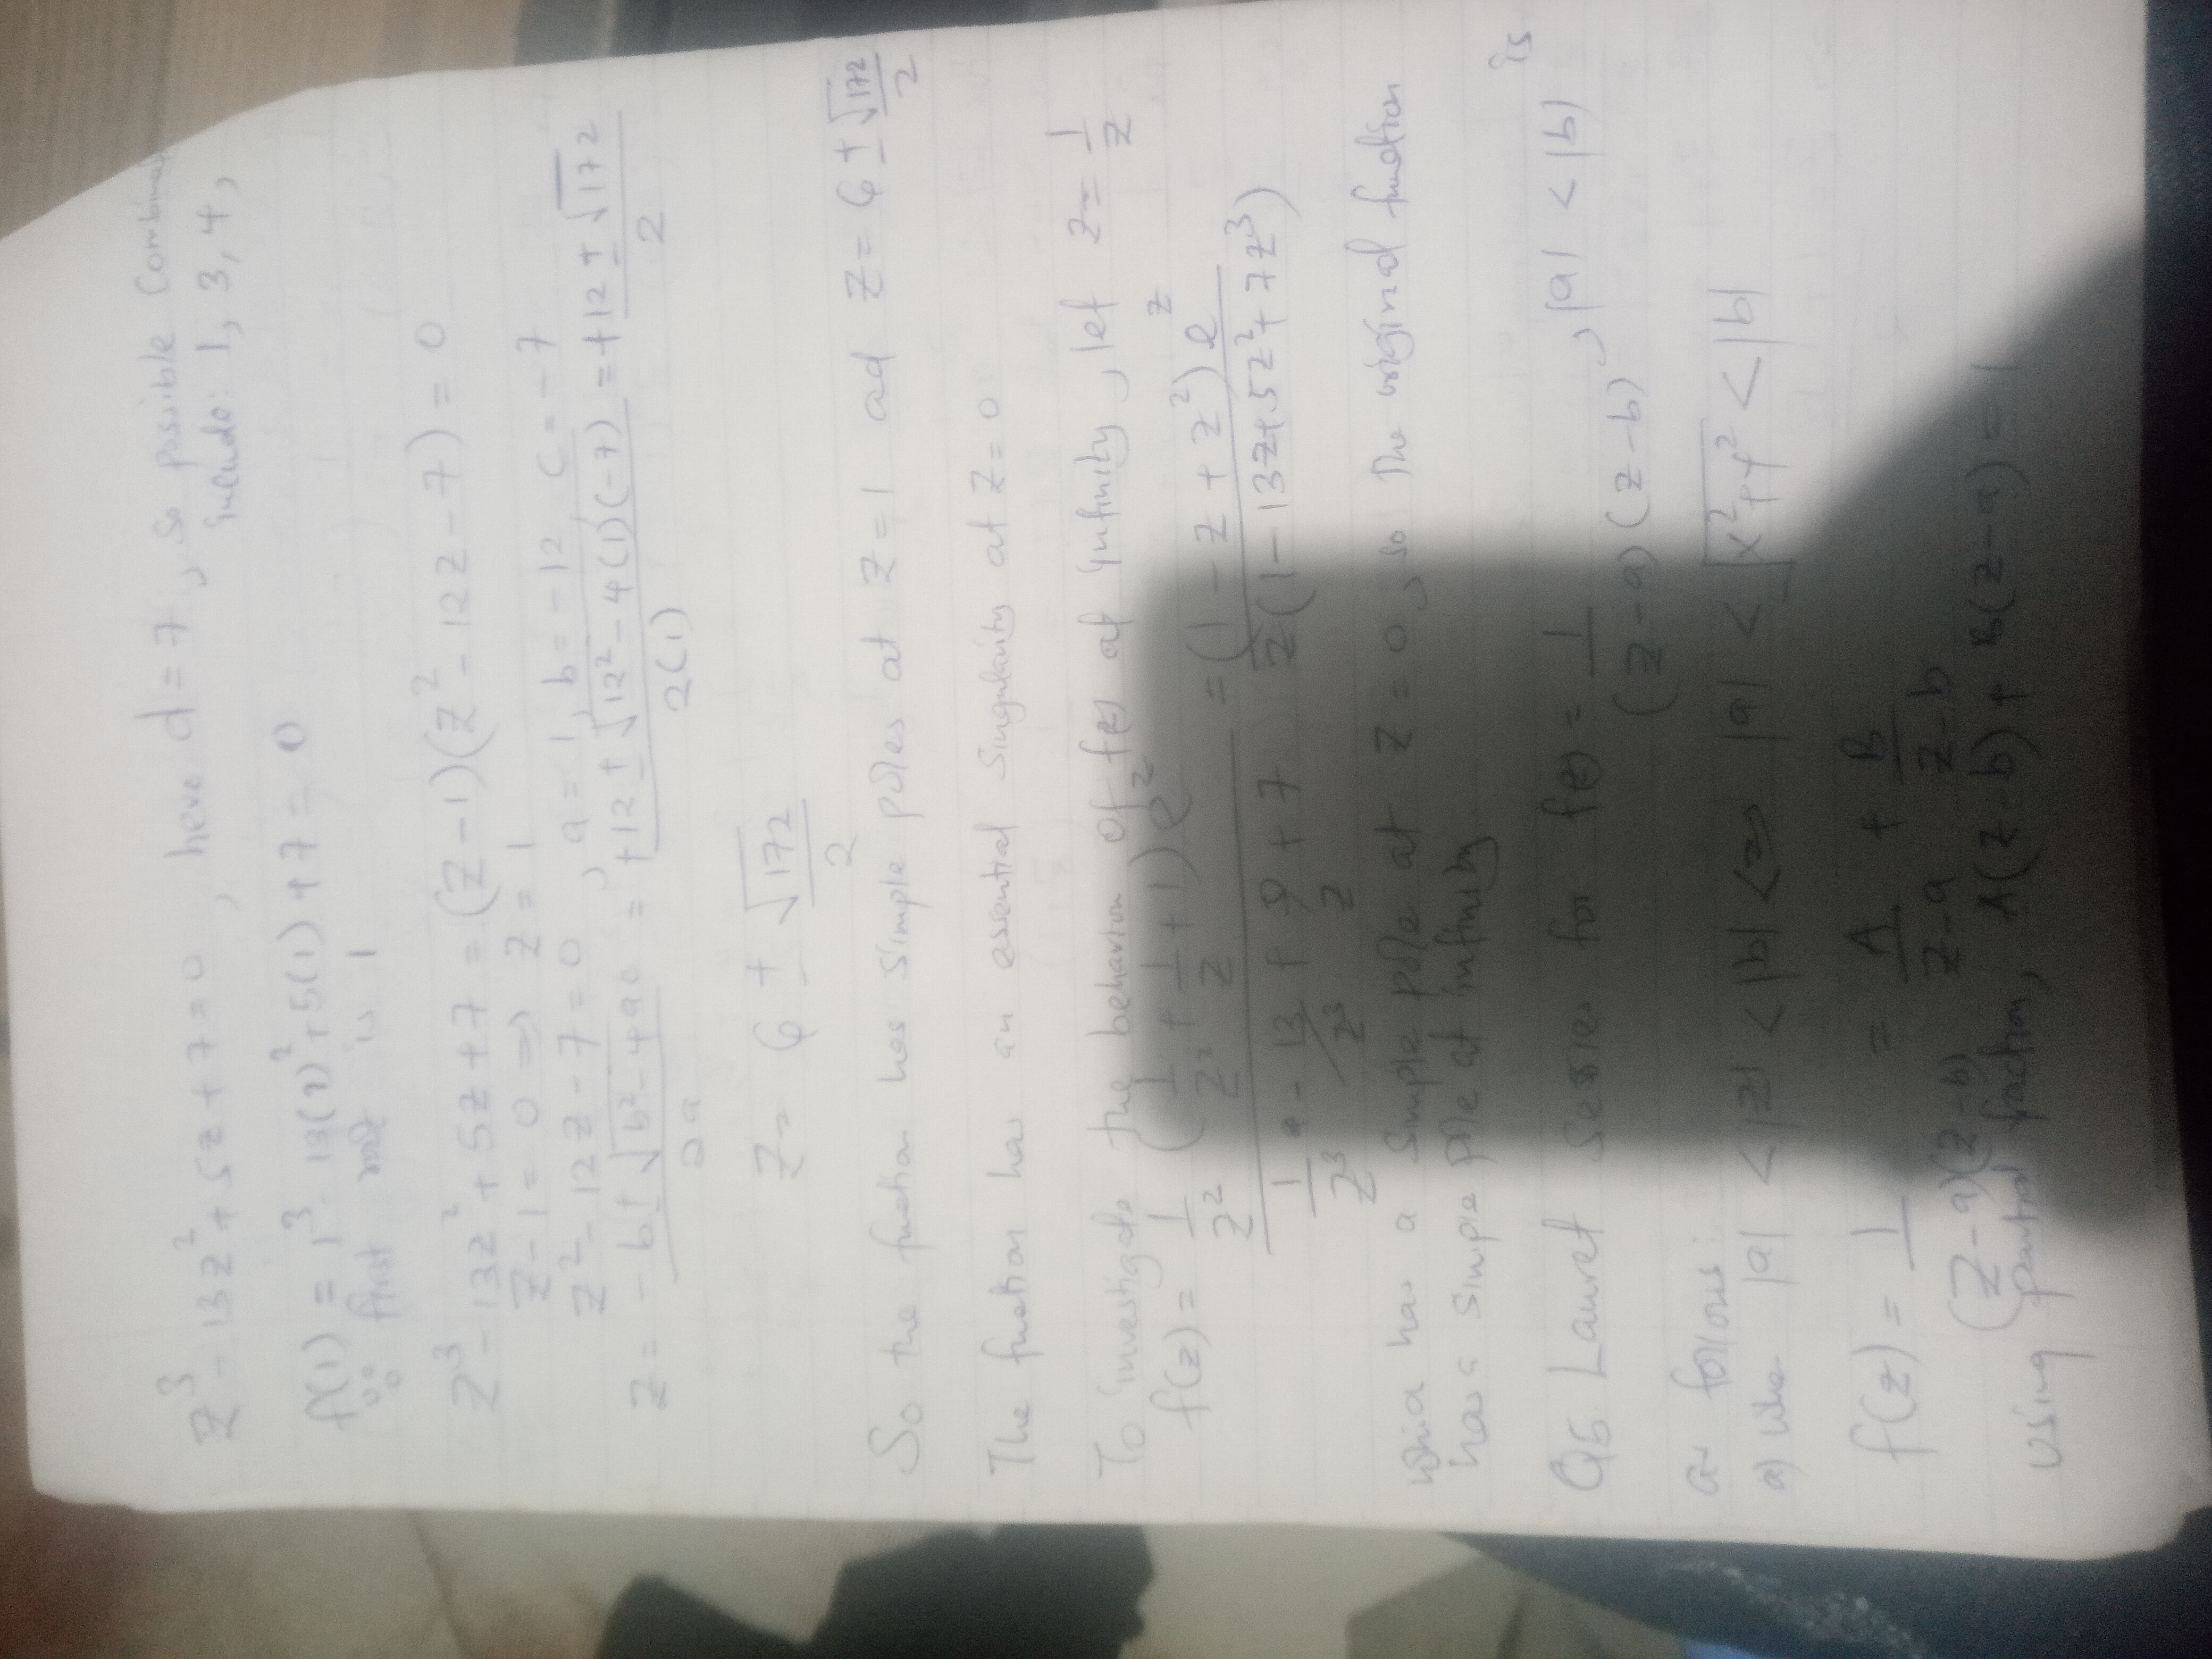 z³ - 13z² + 5z + 7 = 0, here d = 7, so possible Combina
include: 1, 3, 4,
f(1) = 1³ - 13(1)² + 5(1) + 7 = 0
∴ first root is 1
z³ - 13z² + 5z + 7 = (z - 1)(z² - 12z - 7) = 0
z - 1 = 0 => z = 1
z² - 12z - 7 = 0, a = 1, b = -12, c = -7
z = (-b ± √(b² - 4ac))/2a = (+12 ± √(12² - 4(1)(-7)))/2(1) = (+12 ± √172)/2
z = 6 ± √172/2
So the function has simple poles at z = 1 ad z = 6 ± √172/2
The function has an essential singularity at z = 0
To investigate the behavior of f(z) at infinity, let z = 1/z
f(z) = (1/z² (1/z² + 1/z + 1) e^z)/(1/z³ - 13/z³ + 9/z + 7) = ((1 - z + z²) e^z)/(z(1 - 13z + 5z² + 7z³))
which has a simple pole at z = 0, so the original function
has a simple pole at infinity.
Q5. Lauret series for f(z) = 1/((z - a)(z - b)), |a| < |b| is
as follows:
a) When |a| < |z| < |b| <=> |a| < √(x² + y²) < |b|
f(z) = 1/((z - a)(z - b)) = A/(z - a) + B/(z - b)
using partial fraction, A(z - b) + B(z - a) = 1